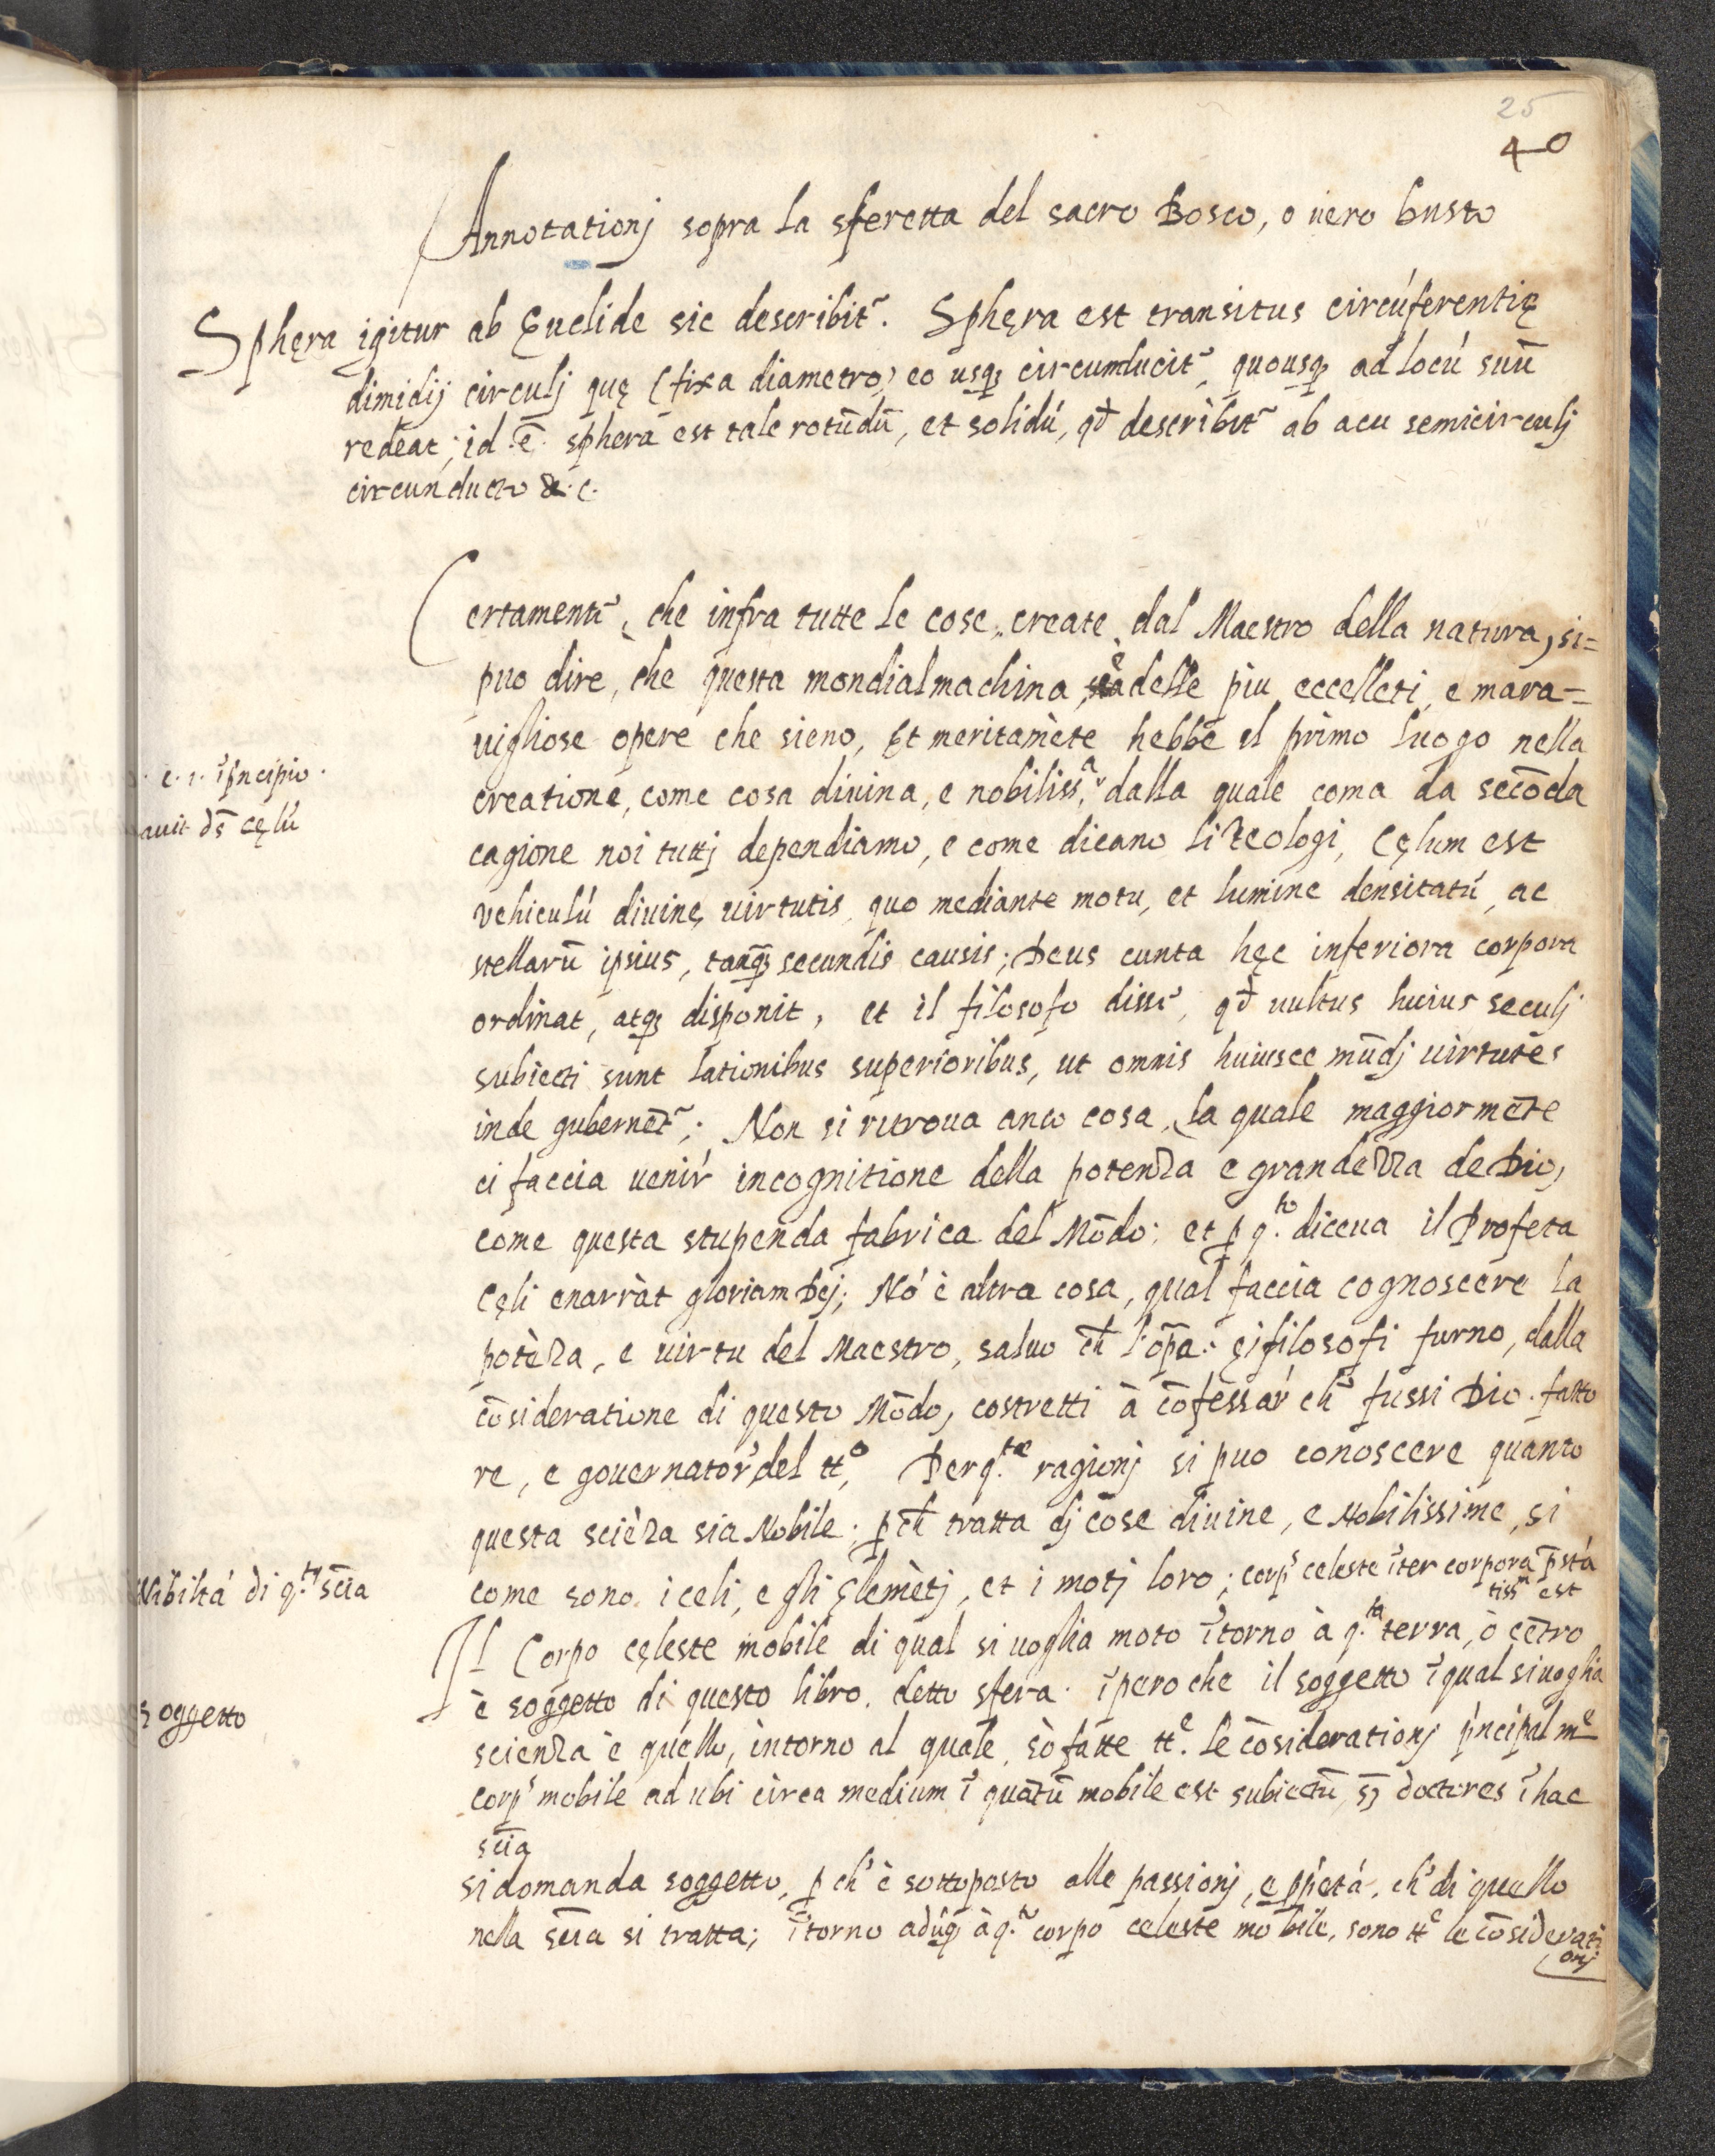 25
40
Annotationj sopra la sferetta del sacro Bosco, o uero busto
Sphęra igitur ab Euclide sic describit̃. Sphęra est transitus circúferentię
dimidij circulj quę (fixa diametro) eo usq; circumducit̃, quousq; ad locú suū
redeat; id .ē. sphera est tale rotūdū, et solidú, qđ describit̃ ab acu semicirculj
circunducto &.c.
Certament̃, che infra tutte le cose, create, dal Maestro della natura, si=
puo dire, che questa mondial machina, è delle piu eccelleti, e mara=
uigliose opere che sieno, Et meritamēte hebbe il primo luogo nella
creatione, come cosa diuina, e nobiliss.ᵃ dalla quale coma da secōda
cagione noi tuttj dependiamo, e come dicano li Teologi, Cęlum est
vehiculú diuinę uirtutis, quo mediante motu, et lumine densitatú, ac
stellarū ipsius, tanq̃ secundis causis; Deus cunta hęc inferiora corpora
ordinat, atq; disponit, et il filosofo diss̃, qđ uultus huius seculj
subiecti sunt lationibus superioribus, ut omnis huiusce mūdj uirtutes
inde gubernēt̃; Non si ritroua anco cosa, la quale maggiormēte
ci faccia uenir incognitione della potenza e grandezza de Dio,
come questa stupenda fabrica del Mōdo; et ꝑ q.ᵗᵒ diceua il Profeta
Cęli enarràt gloriam Dej; Nó è altra cosa, qual faccia cognoscere la
potēza, e uirtu del Maestro, saluo ch̃ l'opa. ei filosofi furno, dalla
cōsideratione di questo Mōdo, costretti à cōfessar ch̃ fussi Dio fatto
re, e gouernator del tt.ᵒ Per q.ᵗᵉ ragionj si puo conoscere quanto
questa sciēza sia Nobile; ꝑch̃ tratta dj cose diuine, e Nobilissime, si
come sono i celi, e gli Elemētj, et i motj loro; corp̃ celeste ĩter corpora p̄stá
tissᵐ est
Il Corpo cęleste mobile di qual si uoglia moto ĩtorno à q.ᵗᵃ terra, ò cētro
è soggetto di questo libro. detto sfera. ĩpero che il soggetto ĩ qual si uoglia
scienza è quello, intorno al quale, sò fatte tt.ᵉ le cōsiderationj p̄ncipalmᵉ
corp̃ mobile ad ubi circa medium ĩ quātū mobile est subiectū, doctores ĩ hac
sciā
si domanda soggetto, ꝑch̃ è sottoposto alle passionj, e ꝓpetá, ch̃ di quello
nella scīa si tratta; ĩtorno adūq; à q.ᵗᵒ corpo celeste mobile, sono tt.ᵉ le cōsiderati
onj
e. 1. ĩ p̄ncipio.
auit ds̄ cęlú
Nibiltá di q.ᵗᵃ scīa
Soggetto